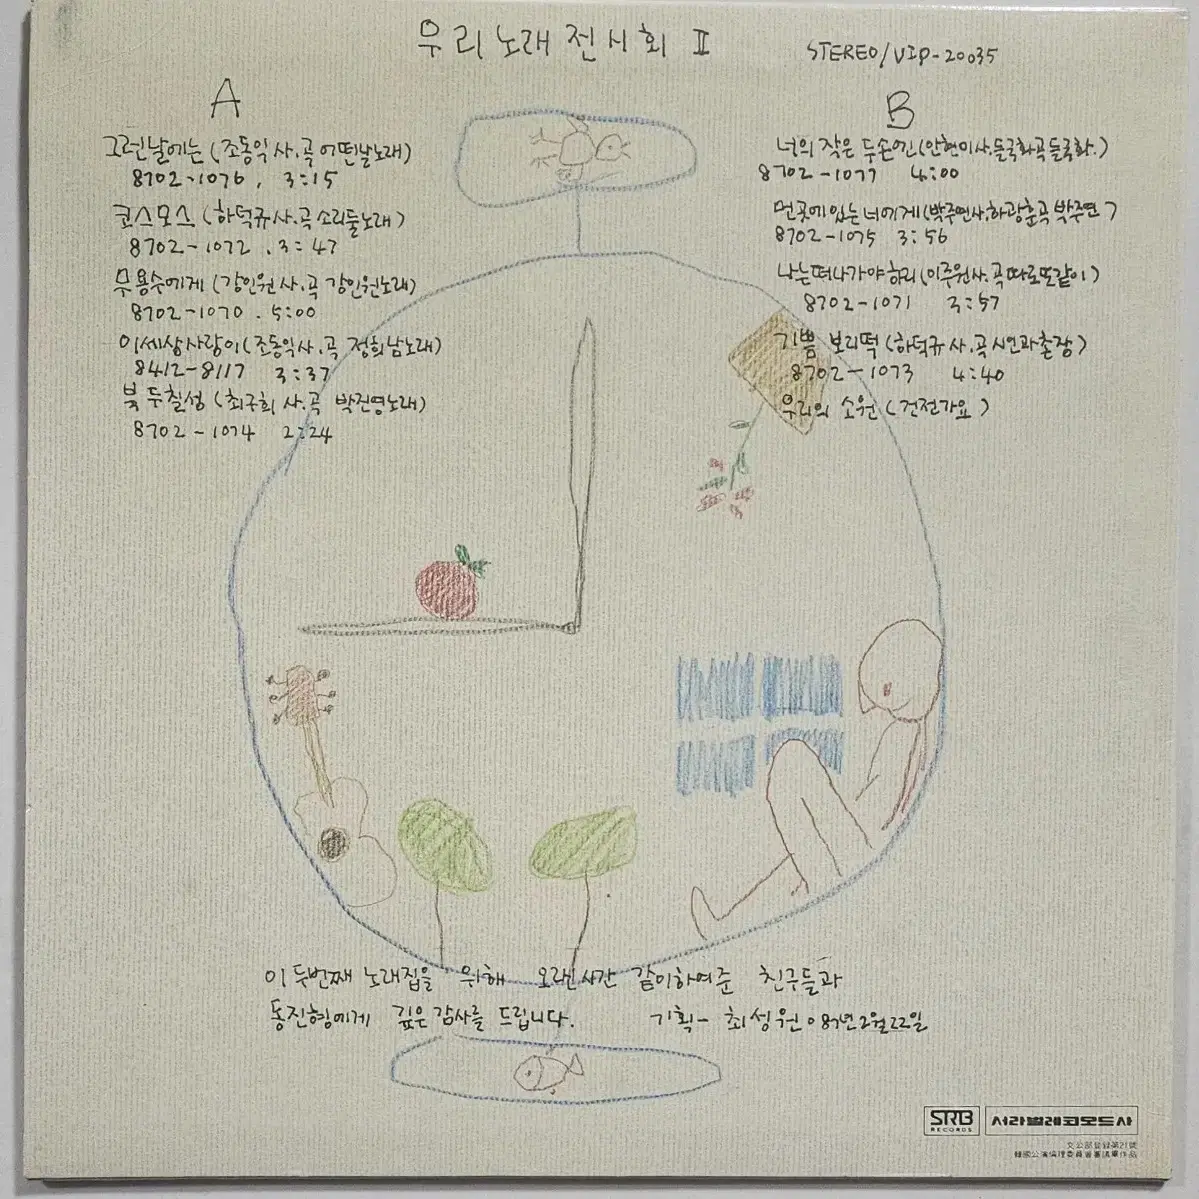 우리노래전시회 II
STEREO/VIP-20035
A
그런날에는 (조동익 사.곡 어떤날노래)
8702-1076, 3:15
코스모스 (하덕규 사.곡 소리둘노래)
8702-1072, 3:47
무용수에게 (강인원 사.곡 강인원노래)
8702-1070. 5:00
이세상사랑이 (조동익 사.곡 정희남노래)
8412-8117 3:37
북두칠성 (최구희 사.곡 박진영노래)
8702-1074 2:24
B
너의 작은 두손엔 (안현미사.들국화곡 들국화.)
8702-1077 4:00
먼곳에 있는 너에게 (박주연사.하광훈곡 박주연)
8702-1075 3:56
나는 떠나가야 하리 (이주원사.곡 따로또같이)
8702-1071 3:57
기쁨 보리떡 (하덕규 사.곡 시인과촌장)
8702-1073 4:40
우리의 소원 (건전가요)
이 두번째 노래집을 위해 오랜시간 같이하여준 친구들과
동진형에게 깊은 감사를 드립니다. 기획- 최성원 87년 2월 22일
SRB
RECORDS
서라벌레코오드사
文公部登録第21號
韓國公演倫理委員會審議畢作品